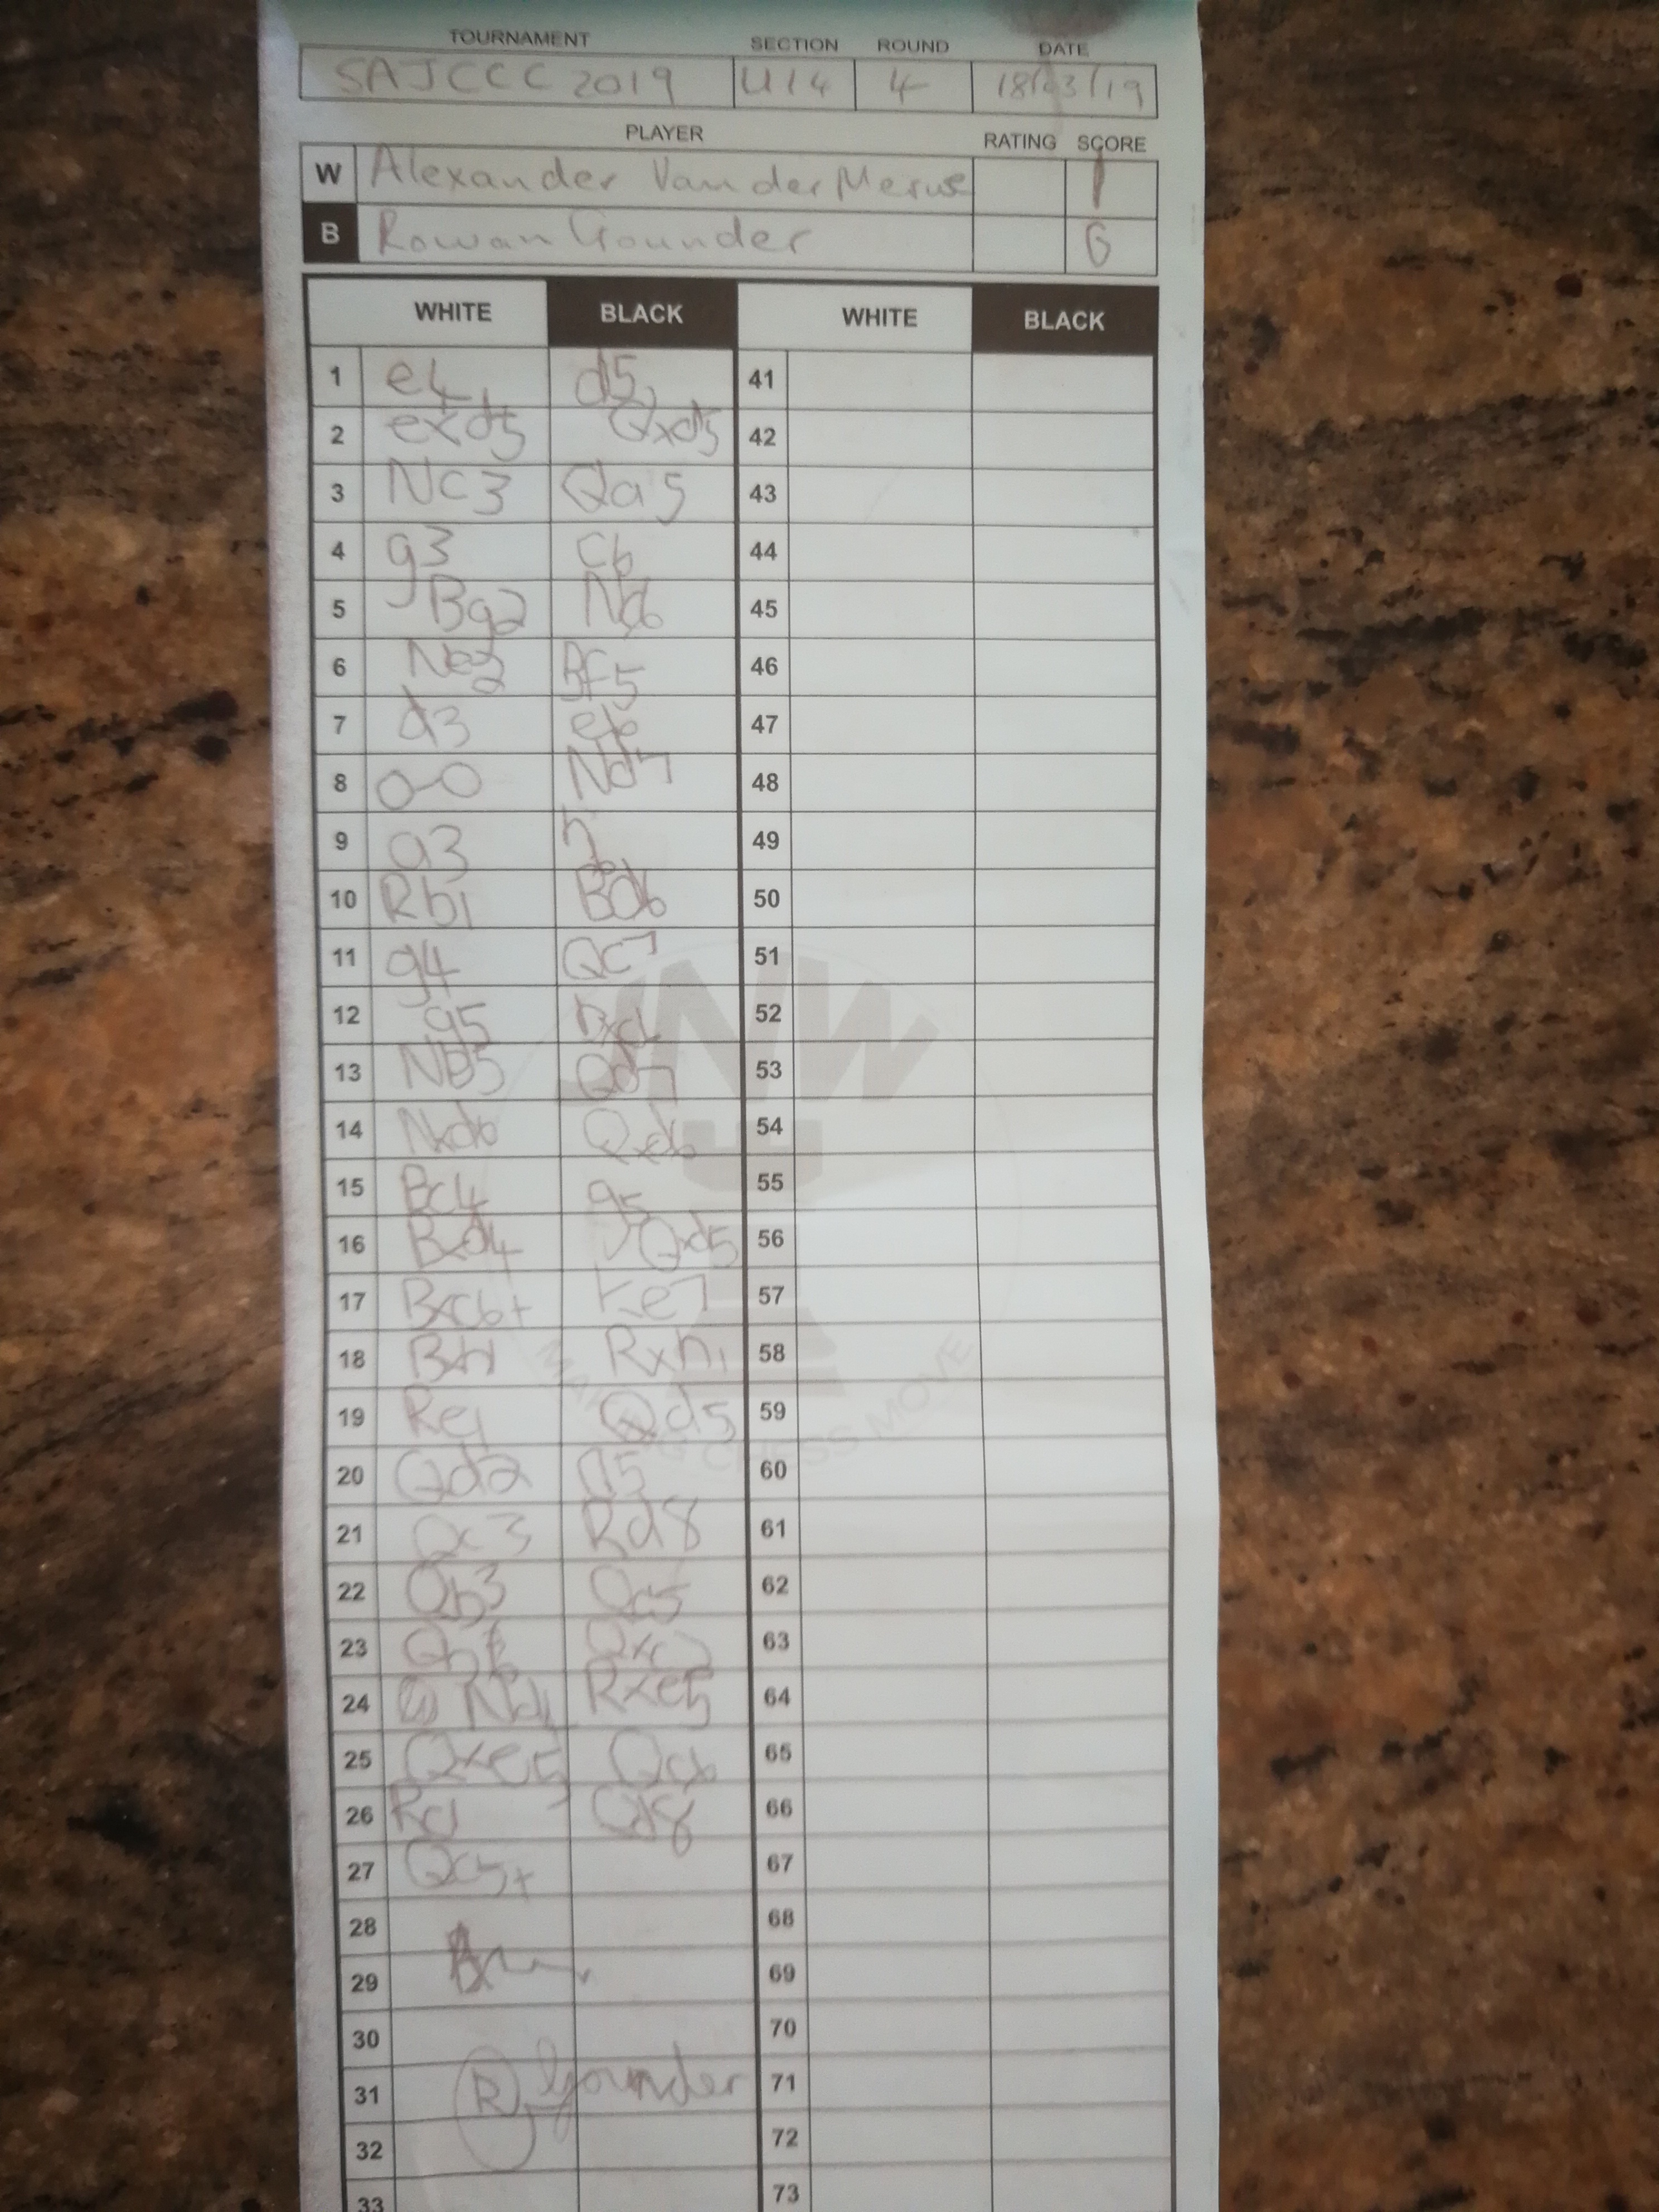 TOURNAMENT SECTION ROUND DATE
SAJCCC 2019 U14 4 18/03/19
PLAYER RATING SCORE
W Alexander Van der Merwe 1
B Rowan Gounder 0
WHITE BLACK WHITE BLACK
1 e4 d5 41
2 exd5 Qxd5 42
3 Nc3 Qa5 43
4 g3 c6 44
5 Bg2 45
6 Ne2 Bf5 46
7 d3 e6 47
8 0-0 Nd7 48
9 a3 49
10 Rb1 Bd6 50
11 g4 Qc7 51
12 g5 52
13 NB5 Qd7 53
14 Nxd6 Qxd6 54
15 Bc4 g5 55
16 Bxd4 Qxd5 56
17 Bxc6+ Ke7 57
18 Rxh1 58
19 Re1 Qd5 59
20 Qd2 60
21 Qc3 Rd8 61
22 Qb3 Qc5 62
23 63
24 Rxe5 64
25 Qxe5 Qc6 65
26 Qd8 66
27 Qc5+ 67
28 68
29 69
30 70
31 R Gounder 71
32 72
33 73
JNW
MAKING CHESS MOVE